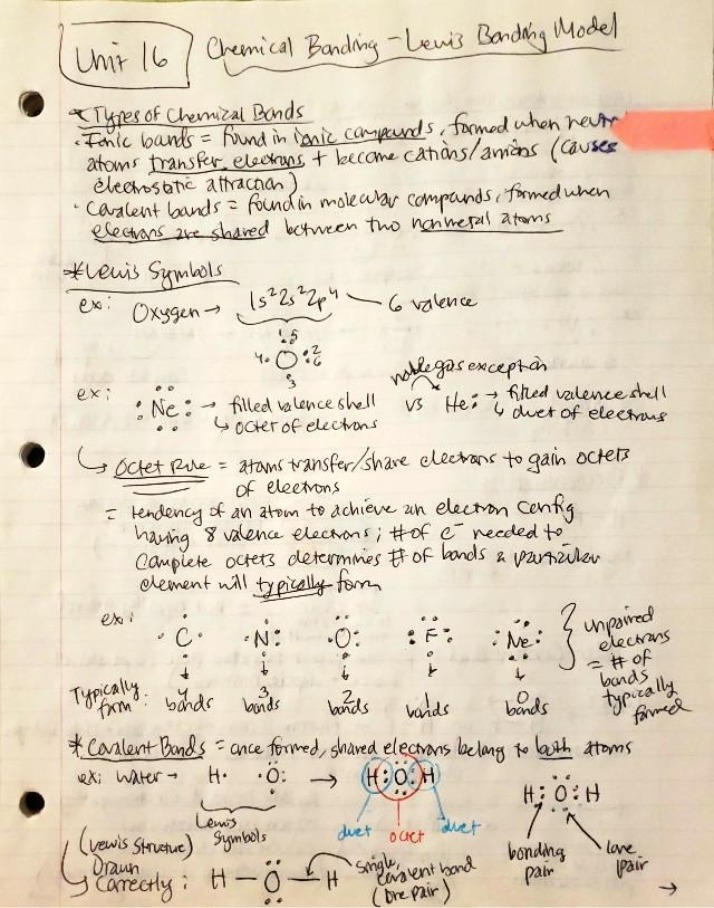 Unit 16
Chemical Bonding - Lewis Bonding Model
* Types of Chemical Bonds
· Ionic bonds = found in ionic compounds, formed when neutr
atoms transfer electrons + become cations/anions (causes
electrostatic attraction)
· Covalent bonds = found in molecular compounds, formed when
electrons are shared between two nonmetal atoms
* Lewis Symbols
ex: Oxygen → 1s²2s²2p⁴ — 6 valence
1. 5
4. O 2 6
3
noble gas exception
ex: Ne → filled valence shell vs He: → filled valence shell
↳ octet of electrons ↳ duet of electrons
↳ Octet Rule = atoms transfer/share electrons to gain octets
of electrons
= tendency of an atom to achieve an electron config
having 8 valence electrons; # of e⁻ needed to
complete octets determines # of bonds a particular
element will typically form
ex: ·C· ·N: ·O: :F: :Ne: } unpaired
electrons
= # of
bonds
typically
formed
Typically form: 4 bonds 3 bonds 2 bonds 1 bonds 0 bonds
* Covalent Bonds = once formed, shared electrons belong to both atoms
ex: Water → H· ·O: → H:O:H H:O:H
Lewis Symbols
duet octet duet
bonding pair
lone pair
(Lewis Structure)
Drawn
Correctly: H — O — H single covalent bond
(one pair)
→